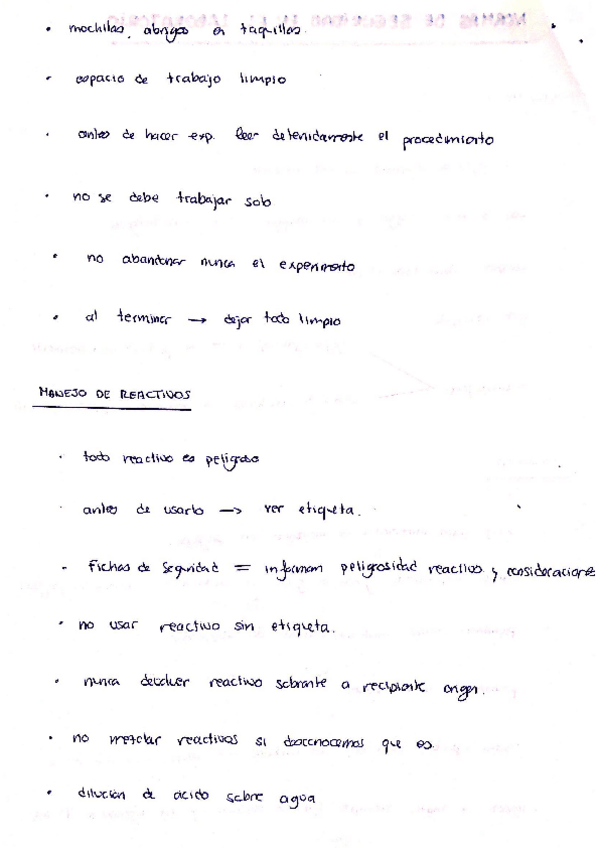 • mochilas, abrigos en taquillas.
• espacio de trabajo limpio
• antes de hacer exp. leer detenidamente el procedimiento
• no se debe trabajar solo
• no abandonar nunca el experimento
• al terminar → dejar todo limpio
MANEJO DE REACTIVOS
• todo reactivo es peligroso
• antes de usarlo → ver etiqueta.
- Fichas de seguridad = informan peligrosidad reactivo y consideraciones
• no usar reactivo sin etiqueta.
• nunca devolver reactivo sobrante a recipiente origen.
• no mezclar reactivos si desconocemos que es
• dilución de ácido sobre agua